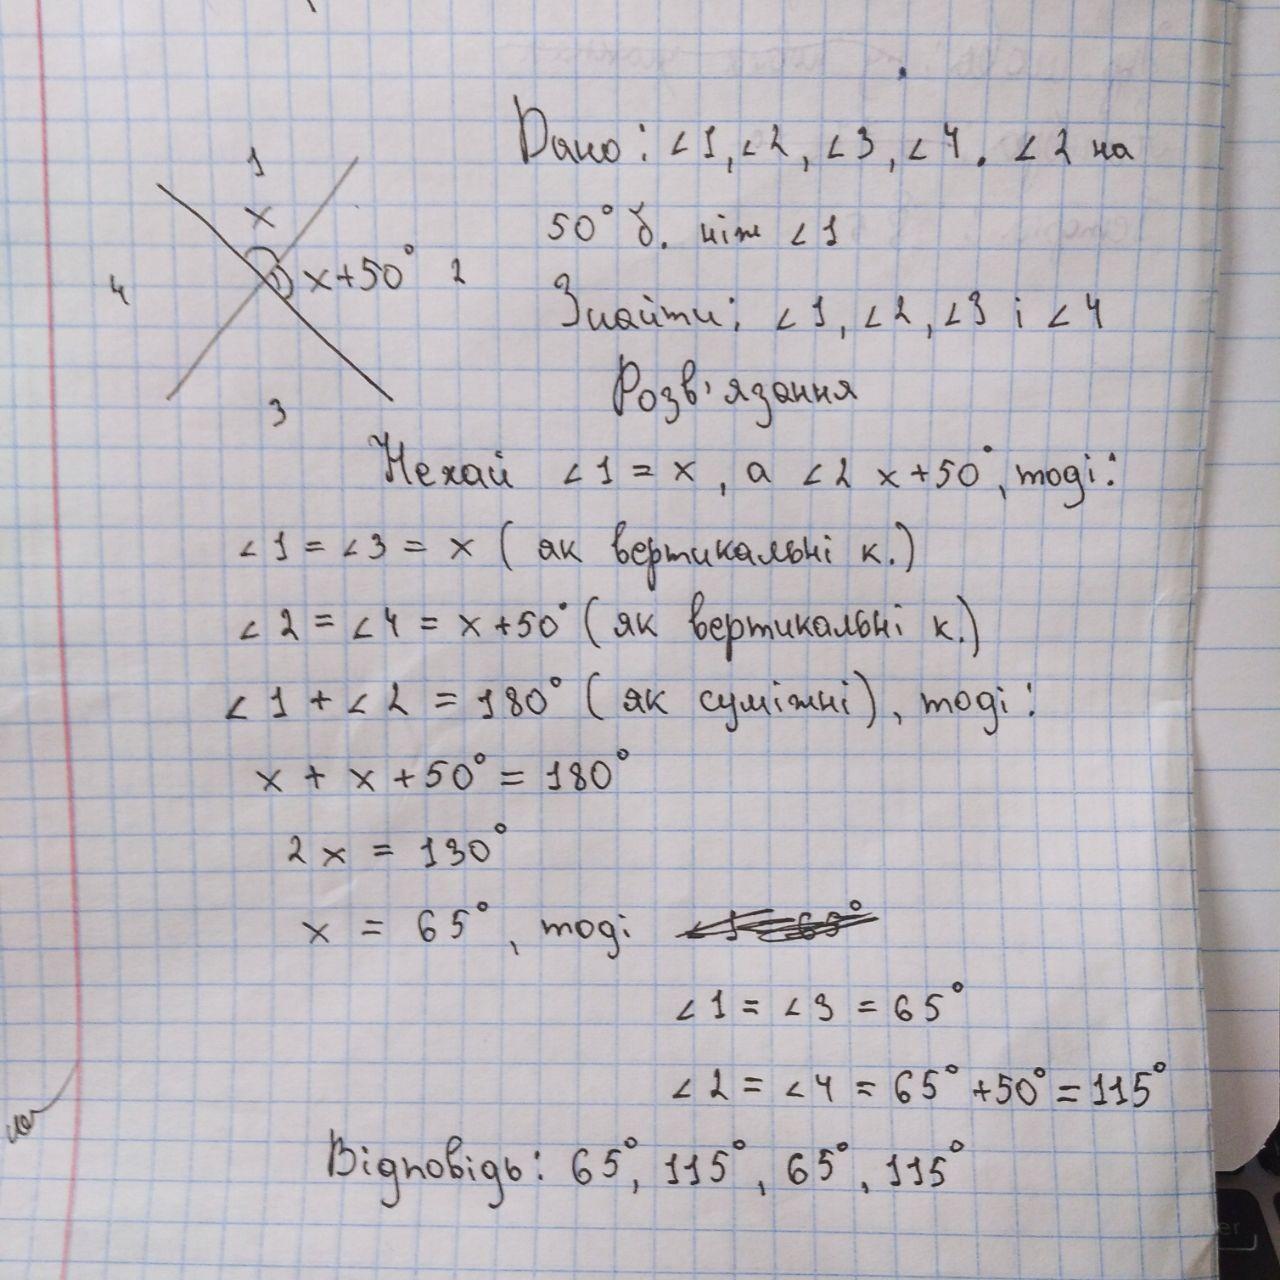 Дано: ∠1, ∠2, ∠3, ∠4. ∠2 на
50° б. ніж ∠1
Знайти: ∠1, ∠2, ∠3 і ∠4
Розв'язання
1
x
x+50° 2
4
3
Нехай ∠1 = x, а ∠2 x+50°, тоді:
∠1 = ∠3 = x (як вертикальні к.)
∠2 = ∠4 = x+50° (як вертикальні к.)
∠1 + ∠2 = 180° (як суміжні), тоді:
x + x + 50° = 180°
2x = 130°
x = 65°, тоді
∠1 = ∠3 = 65°
∠2 = ∠4 = 65° + 50° = 115°
Відповідь: 65°, 115°, 65°, 115°